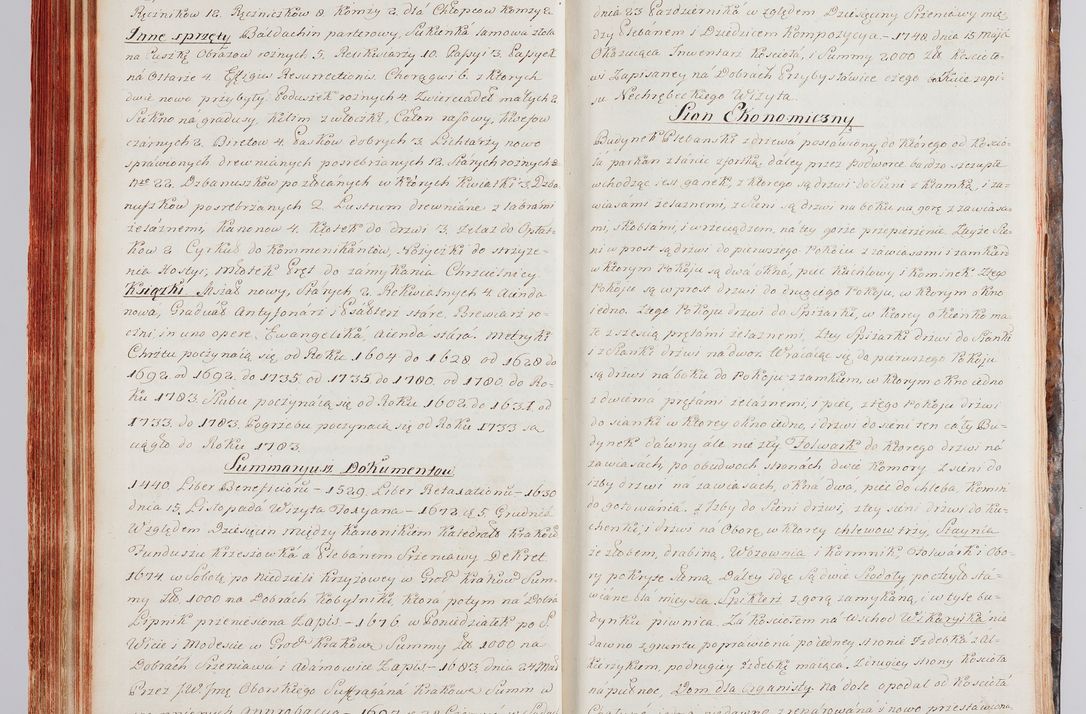 Ręczników 12. Ręczniczków 8. Komży 2. dlá Chłopców Komży 2.
Inne sprzęty Baldachin parterowy. Sukienká lamowa złota
na Puszkę Obrazow rożnych 5. Relikwiarzy 10. Passyi 3. Passyek
ná Ołtarze 4. Effigies Resurrectionis Chorągwi 6. z ktorych
dwie nowo przybyły. Poduszek rożnych 4. Zwierciadeł małych 2.
Sukno ná gradusy, Kilim z włoczki, Całon rasowy,
czarnych 2. Biretow 4. Pasków dobrych 3. Lichtarzy nowo
sprawionych drewnianych posrebrzanych 12. Starych rożnych
Nro 22. Dzbanuszków pozłacánych w ktorych kwiatki 3. Dzba-
nuszków posrebrzanych 2. Lustrum drewniane z labrami
żeláznemi, Kanonow 4. Kłotek do drzwi 3. Zelaz do Opłat-
ków 2. Cyrkuł do Kommunikantow, Nożyczki do strzyże-
nia Hostyi, Młotek Pręt do zamykania Chrzcielnicy
Książki Mszał nowy, Stárych 2. Rekwialnych 4. Aienda
nowa, Graduał Antyfonarz i Psałterz stáre, Brewiarz ro-
czni in uno opere, Ewangeliká, Aienda stára. Metryki
Chrztu poczynáią się od Roku 1604 do 1628 od 1628 do
1692. od 1692. do 1735. od 1735 do 1780. od 1780 do Ro-
ku 1783. Slubu poczynáią się od Roku 1602 do 1631. od
1733. do 1783. Pogrzebu poczynáią się od Roku 1733 są
ciągłe do Roku 1783.
Summaryusz Dokumentow
1440. Liber Beneficioru – 1529. Liber Retaxationu – 1630
dnia 15. Listopadá Wizyta – 1672 d. 5. Grudnia
Względem Dziesięcin między Kanonikiem Katedrálo Krakow
Funduszu Krzesłowká a Plebanem Szreniawy Dekret
1674. w Sobotę po Niedzieli Krzyżowey w Grod Krakow Sum-
my Złł 1000 na Dobrach Kobylniki, ktora potym ná Dobra
Lipnik przeniesiona Zapis – 1676 w Poniedziałek po S.
Wicie i Modescie w Grod Krakow Summy Złł 1000 ná
Dobrach Szreniawa i Adamowice Zapis – 1683 dnia 24 Maii
Przez JW Jmę Oborskiego Suffragána Krakow Summ w
dnia 23 Pazdziernika względem Dziesięciny Szreniawy mię-
dzy Plebanem i Dziedzicem Kompozycya – 1748 dnia 15 Maja
Okazuiąca Inwentarz Kościoła, i Summy 2000 złł Kościoło-
wi Zapisaney ná Dobrach Przybysławice czego także zapi-
su Nochrębeckiego Wizyta.
Stan Ekonomiczny
Budynek Plebanski z drzewa postawiony, do którego od Kościo-
ła parkan z tárcic z fortką, dáley przez podworce bardzo szczupłe
wchodząc iest ganek, z ktorego są drzwi do Sieni z klamką, i za-
wiasami żelaznemi, z Sieni są drzwi na boku na gorę z zawiasa-
mi, Skoblami, i wrzeciądzem, na tey gorze przepierzenie. Zayże Sie-
ni w prost są drzwi do pierwszego Pokoiu z zawiasami i zamkiem
w ktorym Pokoiu są dwá okná, piec Kachlowy i Kominek. Z tego
Pokoiu są w prost drzwi do drugiego Pokoiu, w ktorym okno
iedno. Z tego Pokoiu drzwi do Spiżarki, w ktorey okienko ma-
łe z sześcią prętámi żeláznemi, z tey Spiżarki drzwi do Sianki
i z Sianki drzwi na dwor. Wracáiąc się do pierwszego Pokoiu
są drzwi ná boku do Pokoiu z zamkiem, w ktorym okno iedno
z dwiema prętámi żeláznemi, i piec, z tego Pokoiu drzwi
do sianki w ktorey okno iedno, i drzwi do sieni ten cały Bu-
dynek dawny ále nie zły Folwark do ktorego drzwi ná
zawiasách, po obudwoch stronách dwie Komory. z sieni do
izby drzwi ná zawiasach, okna dwá, piec do chleba, Komin
do gotowania. z Izby do Sieni drzwi, z tey sieni drzwi do Ku-
chenki, i drzwi ná Oborę, w ktorey chlewow trzy, Staynia
ze żłobem, drabiną, Wozownia i Karmnik Folwárk i Obo-
ry pokryte słomą Dáley idąc Są dwie Stodoły poszyte stá-
wiáne blá mieysca, Spiklerz z gorą zamykaną, i w tyle bu-
dynku piwnica. Zá Kościołem ná wschod Wikaryiká nie
dawno z gruntu poprawioná po iedney stronie Izdebká z al-
kierzykiem, po drugiey Izdebkę maiąca. Z drugiey strony Kościoła
ná pułnoc, Dom dla Organisty. Ná dole opodal od Kościoła